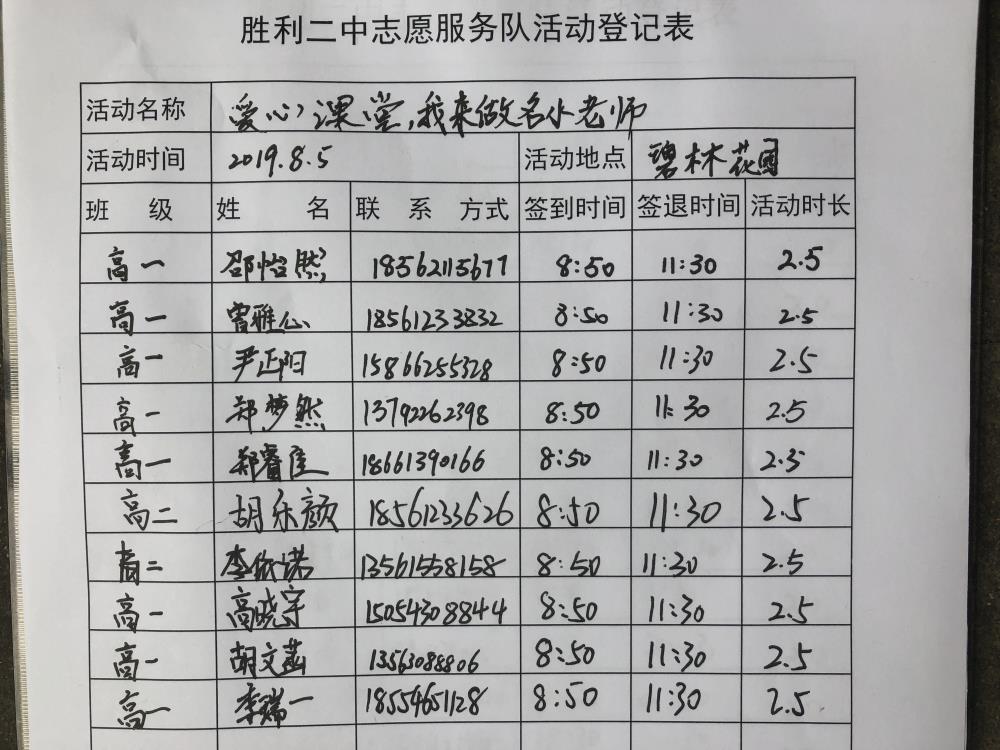 胜利二中志愿服务队活动登记表
活动名称 爱心课堂,我来做名小老师
活动时间 2019.8.5 活动地点 碧林花园
班 级 姓 名 联 系 方式 签到时间 签退时间 活动时长
高一 邵怡然 18562115677 8:50 11:30 2.5
高一 曾雅心 18561233832 8:50 11:30 2.5
高一 尹正阳 15866255328 8:50 11:30 2.5
高一 郑梦然 13792262398 8:50 11:30 2.5
高一 郑睿 18661390166 8:50 11:30 2.5
高二 胡乐颜 18561233626 8:50 11:30 2.5
高二 李依诺 13561558158 8:50 11:30 2.5
高一 高晓宇 15054308844 8:50 11:30 2.5
高一 胡文菡 13563088806 8:50 11:30 2.5
高一 李瑞一 18554651128 8:50 11:30 2.5